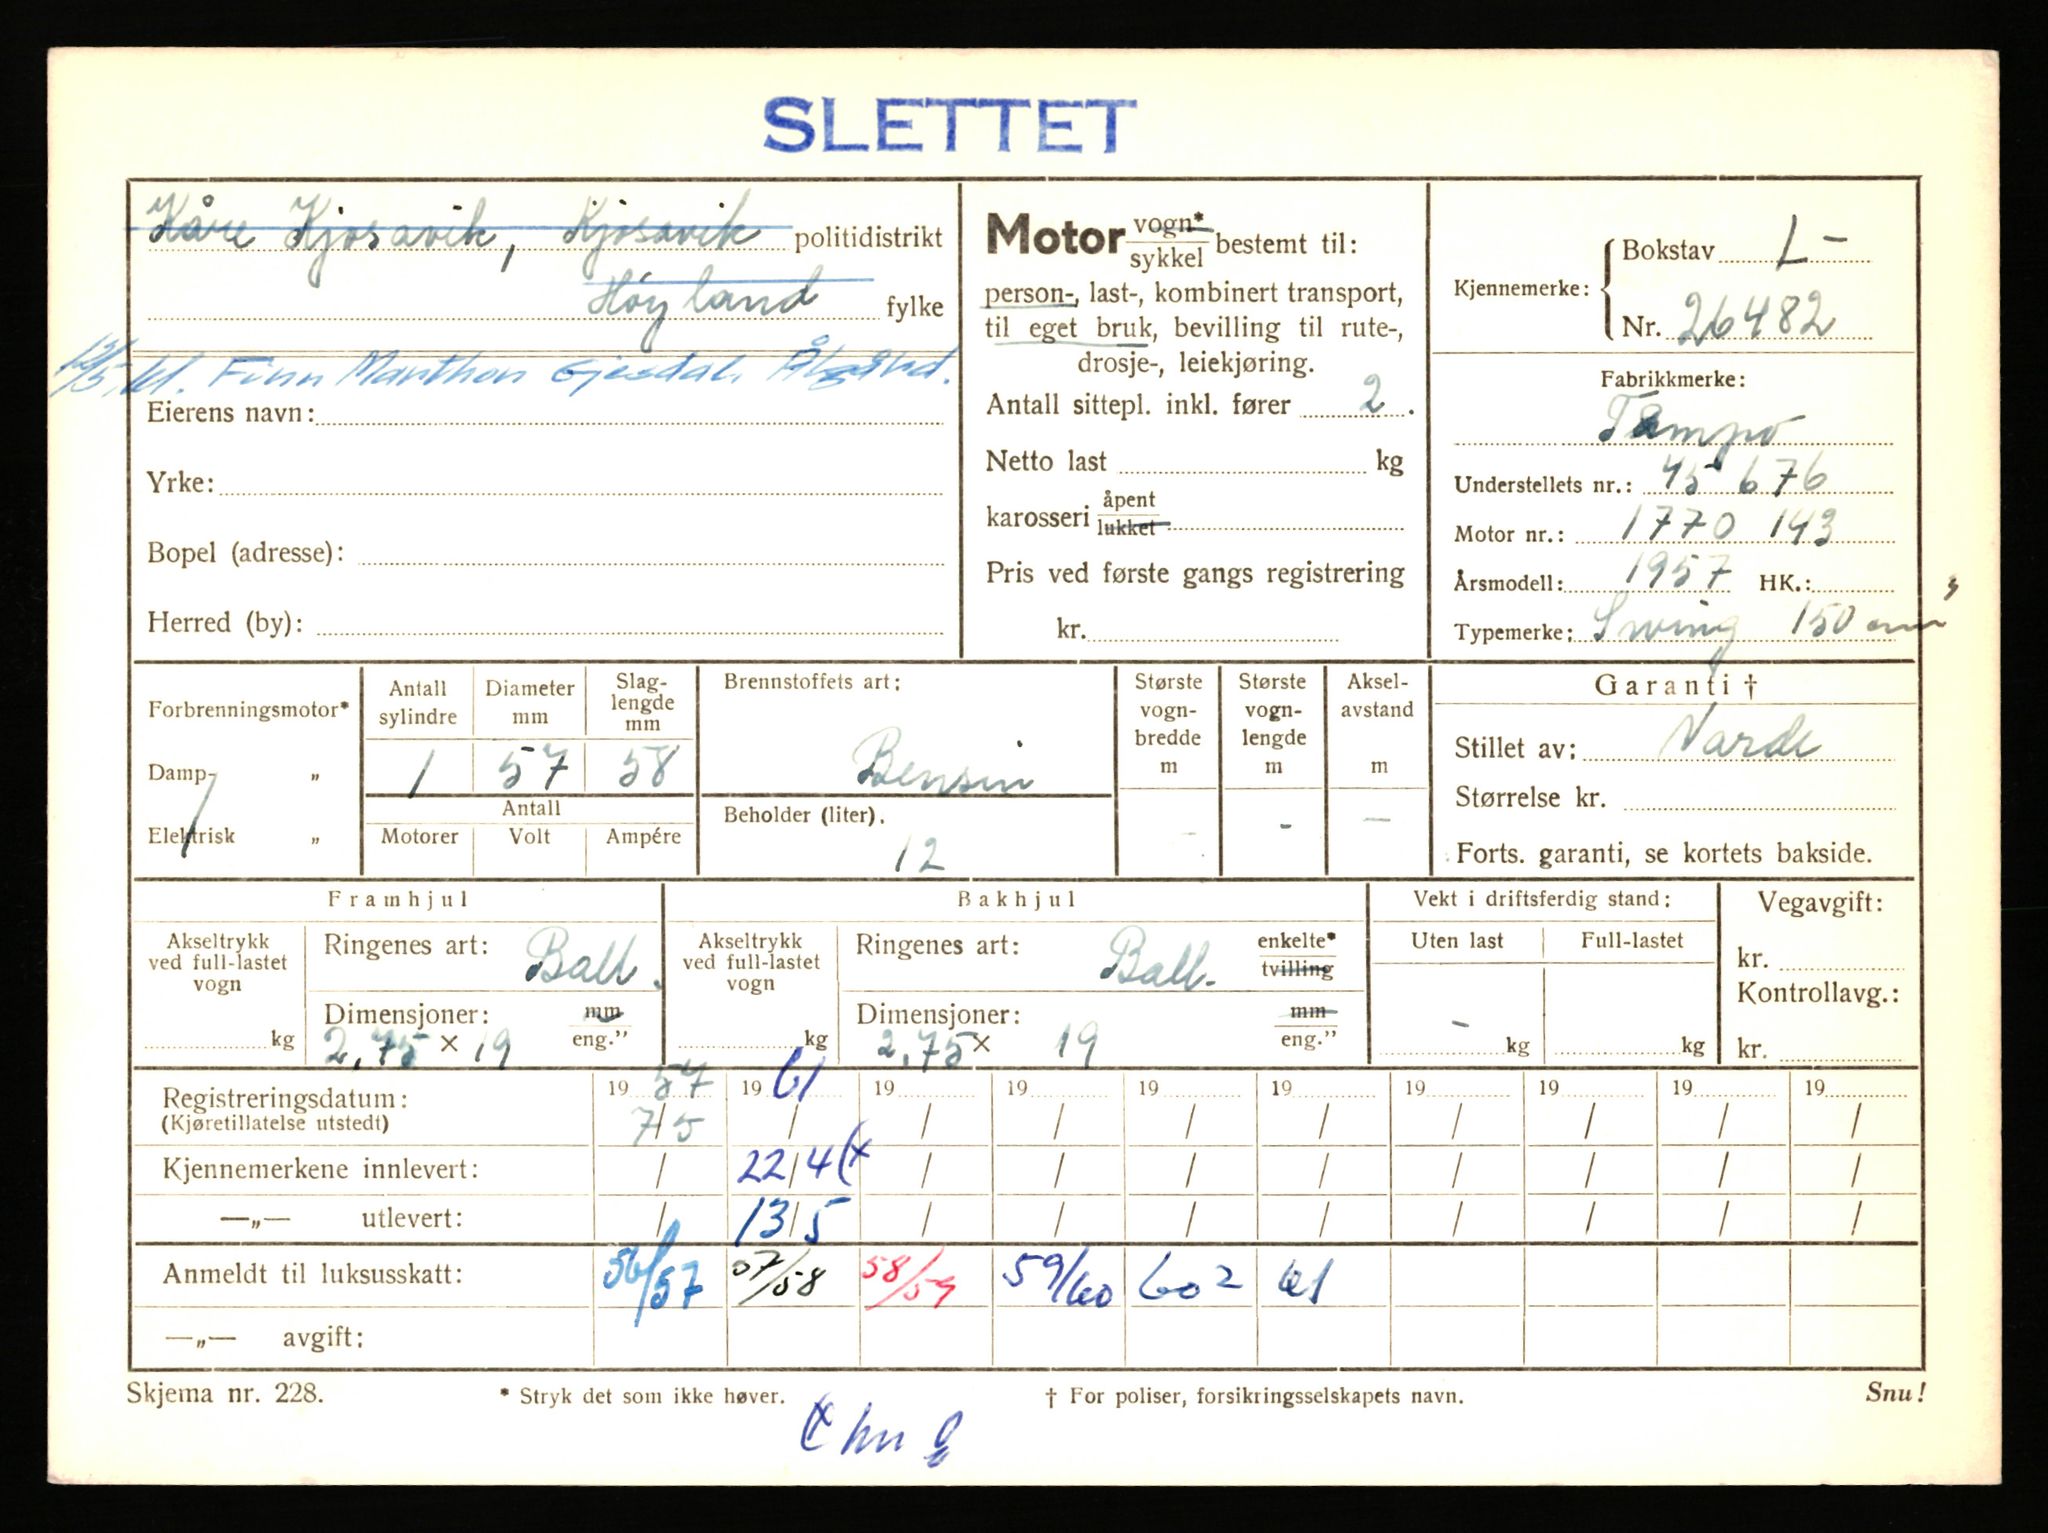 SLETTET
Kåre Kjosavik, Kjosavik politidistrikt
Høyland fylke
Finn Manthon Gjesdal. Ålgård.
Eierens navn:
Yrke:
Bopel (adresse):
Herred (by):
Motor vogn* sykkel bestemt til:
person-, last-, kombinert transport,
til eget bruk, bevilling til rute-,
drosje-, leiekjøring.
Antall sittepl. inkl. fører 2.
Netto last kg
karosseri åpent lukket
Pris ved første gangs registrering
kr.
Kjennemerke: Bokstav L-
Nr. 26482
Fabrikkmerke:
Tempo
Understellets nr.: 45 676
Motor nr.: 1770 143
Årsmodell: 1957 HK.:
Typemerke: Swing 150 cm³
Forbrenningsmotor*
Damp- „
Elektrisk „
Antall sylindre
Diameter mm
Slag-lengde mm
1 57 58
Antall
Motorer Volt Ampére
Brennstoffets art:
Bensin
Beholder (liter).
12
Største vogn-bredde m
Største vogn-lengde m
Aksel-avstand m
- - -
Garanti †
Stillet av: Varde
Størrelse kr.
Forts. garanti, se kortets bakside.
Framhjul
Akseltrykk ved full-lastet vogn
kg
Ringenes art: Ball.
Dimensjoner: mm eng.”
2,75 × 19
Bakhjul
Akseltrykk ved full-lastet vogn
kg
Ringenes art: Ball. enkelte* tvilling
Dimensjoner: mm eng.”
2,75 × 19
Vekt i driftsferdig stand:
Uten last Full-lastet
- kg kg
Vegavgift:
kr.
Kontrollavg.:
kr.
Registreringsdatum: 19 57 19 61 19 19 19 19 19 19 19 19
(Kjøretillatelse utstedt) 7/5 / / / / / / / / /
Kjennemerkene innlevert: / 22/4 (x / / / / / / / /
—„— utlevert: / 13/5 / / / / / / / /
Anmeldt til luksusskatt: 56/57 57/58 58/59 59/60 60 2 61
—„— avgift:
Skjema nr. 228. * Stryk det som ikke høver. † For poliser, forsikringsselskapets navn. Snu!